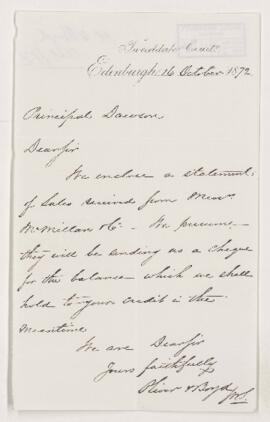 Tweeddale Court
Edinburgh 26 October 1872
Principal Dawson
Dear Sir
We enclose a statement
of Sales received from Messrs
McMillan & Co - We presume
they will be sending us a cheque
for the balance which we shall
hold to your credit in the
meantime
We are Dear Sir
Yours faithfully
Oliver & Boyd